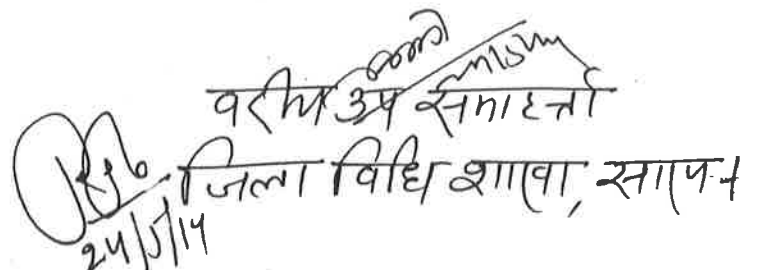 वरीय उप समाहर्त्ता
जिला विधि शाखा, सारण
24/5/14